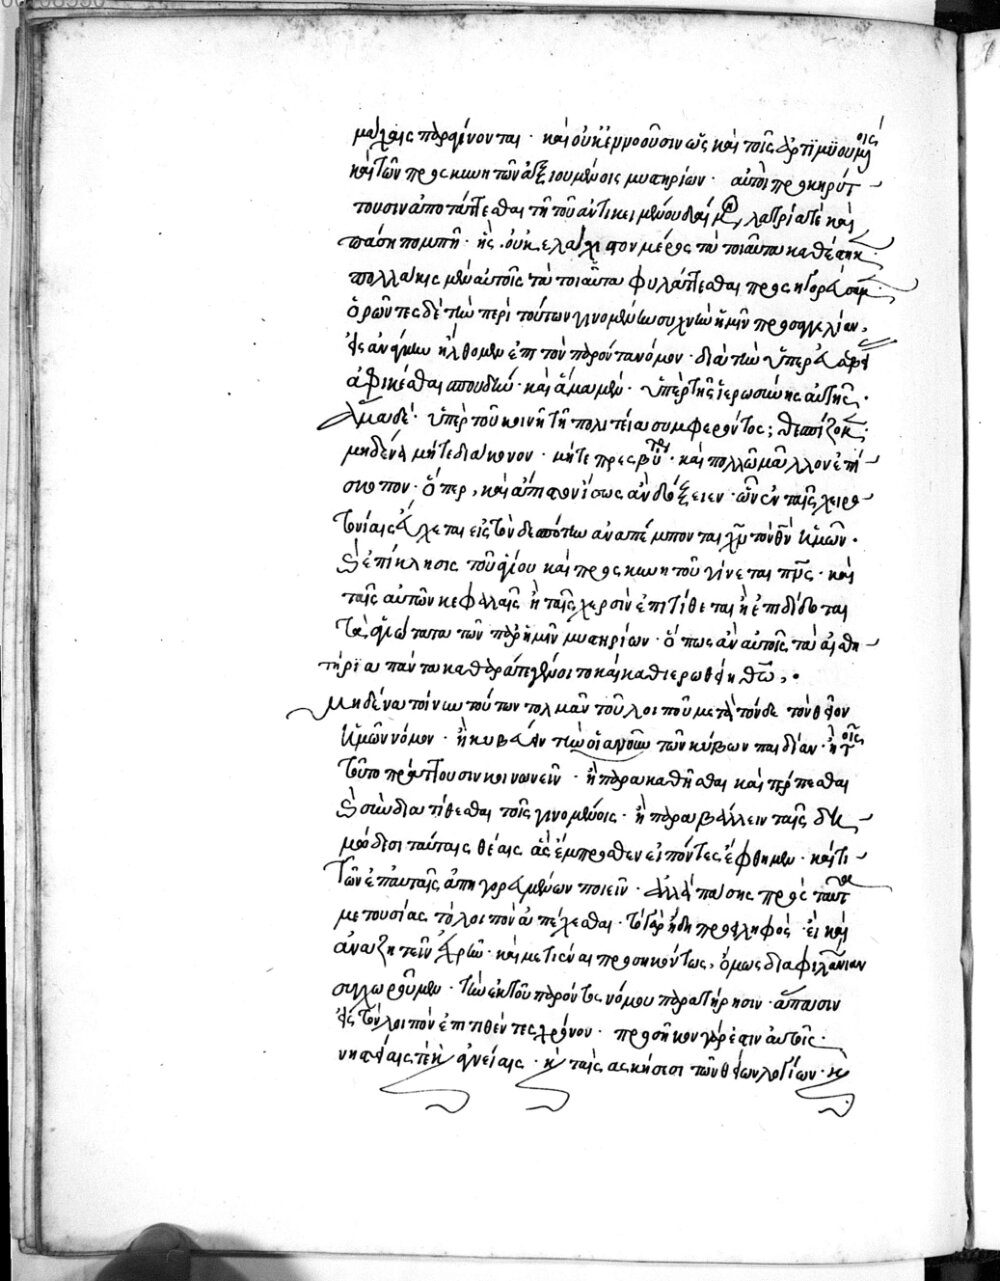 μάχαις παραγίνονται · καὶ οὐκ ἐννοοῦσιν ὡς καὶ τοῖς ἄρτι μυουμένοις
καὶ τῶν προσκυνητῶν ἀξιουμένοις μυστηρίων · αὐτοὶ προκηρύτ
τουσιν ἀποτάττεσθαι τῇ τοῦ ἀντικειμένου δαίμονος λατρείᾳ τε καὶ
πάσῃ πομπῇ · ἧς οὐκ ἐλάχιστον μέρος τὰ τοιαῦτα καθέστηκε ·
πολλάκις μὲν αὐτοῖς τὰ τοιαῦτα φυλάττεσθαι προσηγορεύσαμεν ·
ὁρῶντες δὲ τὴν περὶ τούτων γινομένην συχνὴν ἡμῖν προσαγγελίαν,
εἰς ἀνάγκην ἤλθομεν ἐπὶ τὸν παρόντα νόμον · διὰ τὴν ὑπὲρ εὐσεβ
ἀφικέσθαι σπουδὴν · καὶ ἅμα μὲν · ὑπὲρ τῆς ἱερωσύνης αὐτῆς ·
ἅμα δὲ · ὑπὲρ τοῦ κοινῇ τῇ πολιτείᾳ συμφέροντος; θεσπίζομεν ·
μηδένα μήτε διάκονον · μήτε πρεσβύτερον · καὶ πολλῷ μᾶλλον ἐπί
σκοπον · ὅπερ, καὶ ἄπιστον ἴσως ἂν δόξειεν · ὧν ἐν ταῖς χειρο
τονίαις εὐχεταὶ εἰς τὸν δεσπότην ἀναπέμπονται χν τὸν θν ἡμῶν ·
ἡ ἐπίκλησις τοῦ ἁγίου καὶ προσκυνητοῦ γίνεται πνς · καὶ
ταῖς αὐτῶν κεφαλαῖς ἢ ταῖς χερσὶν ἐπιτίθεται ἢ ἐπιδίδοται
τὰ ἁγιώτατα τῶν παρ' ἡμῖν μυστηρίων · ὅπως ἂν αὐτοῖς τὰ αἰσθη
τήρια πάντα καθαρά τε γένοιτο καὶ καθιερωθείη θῶ, ·
Μηδένα τοίνυν τούτων τολμᾶν τοῦ λοιποῦ μετὰ τόνδε τὸν θεῖον
ἡμῶν νόμον · ἢ κυβεύειν τὴν οἱανοῦν τῶν κύβων παιδιάν · ἢ τοῖς
τοῦτο πράττουσιν κοινωνεῖν · ἢ παρακαθῆσθαι καὶ τέρπεσθαι
ἢ συνδιατίθεσθαι τοῖς γινομένοις · ἢ παραβάλλειν ταῖς δη
μώδεσι ταύταις θέαις ἃς ἔμπροσθεν εἰπόντες ἔφθημεν · καί τι
τῶν ἐπ' αὐταῖς ἀπηγορευμένων ποιεῖν · ἀλλὰ πάσης πρὸς ταῦτα
μετουσίας τὸ λοιπὸν ἀπέχεσθαι · τὸ γὰρ ἤδη προειληφὸς · εἰ καὶ
ἀναζητεῖν ἐχρῆν · καὶ μετιέναι προσηκόντως, ὅμως διὰ φιλανίαν
συγχωροῦμεν · τὴν ἐκ τοῦ παρόντος νόμου παρατήρησιν · ἅπασιν
εἰς τὸν λοιπὸν ἐπιτιθέντες χρόνον · προσῆκον γάρ ἐστιν αὐτοῖς ·
νηστείαις τὲ κ ἁγνείαις · κ ταῖς ἀσκήσεσι τῶν θείων λογίων · κ